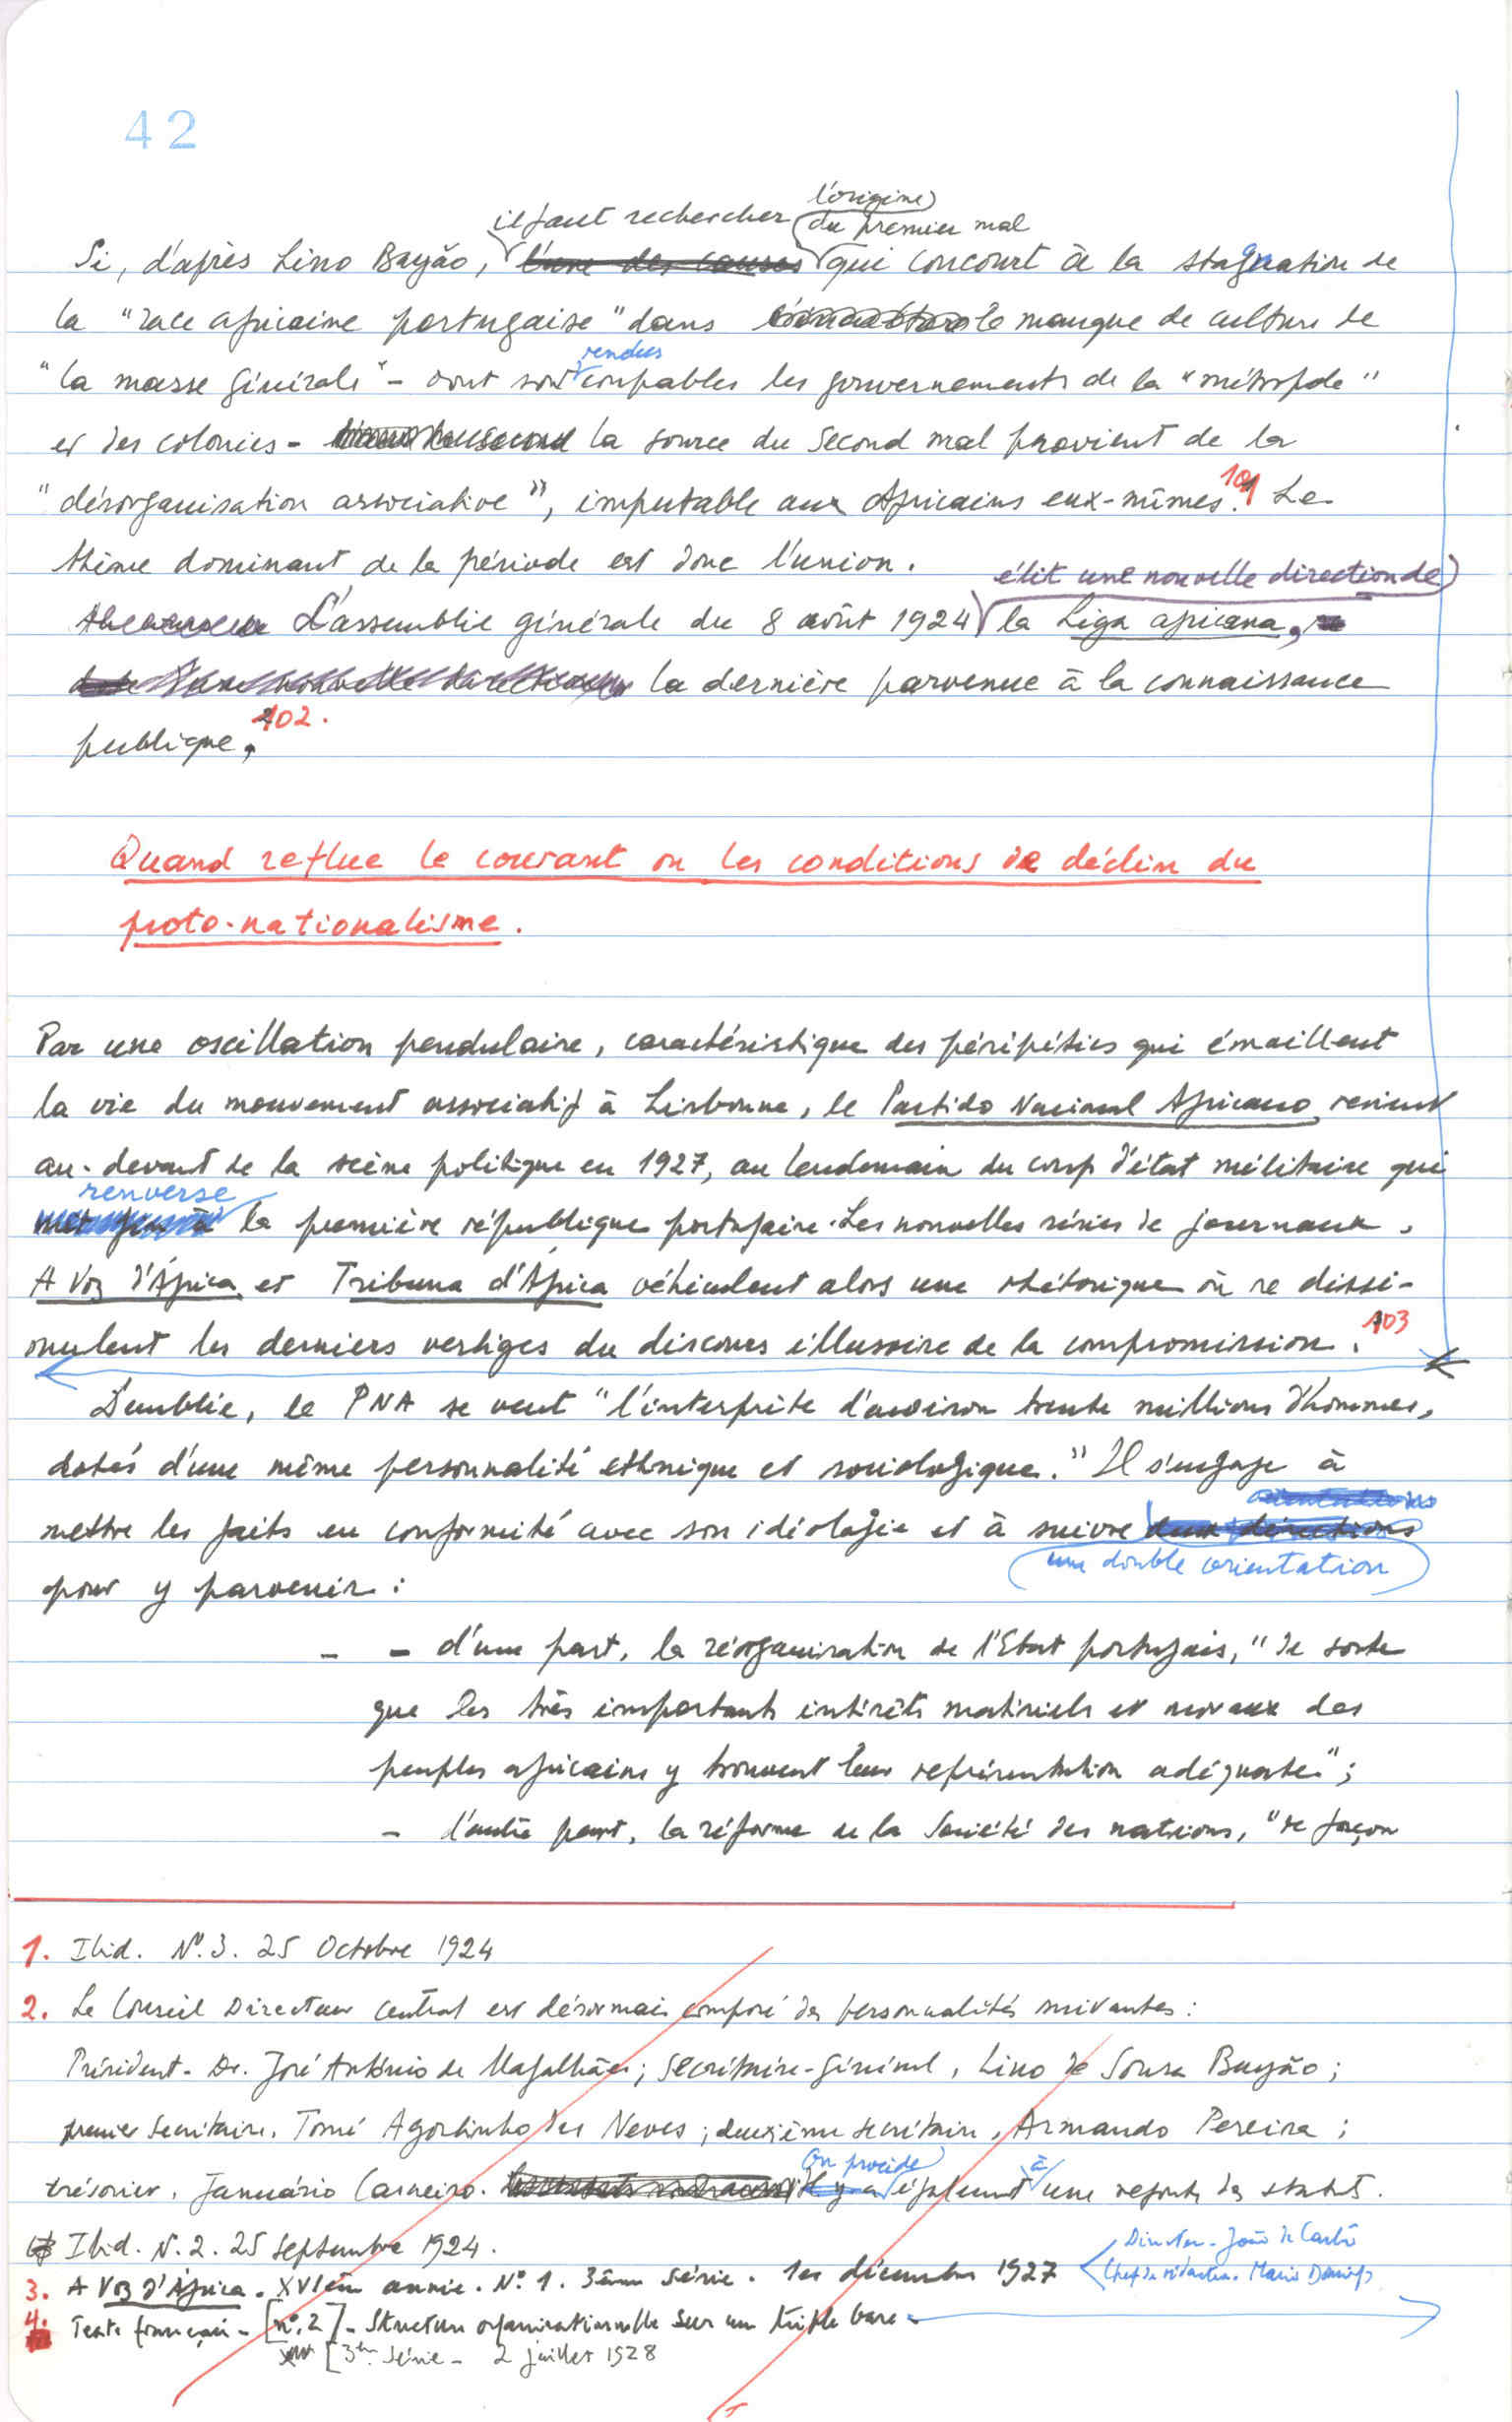 42
l'origine
il faut rechercher du premier mal
Si, d'après Lino Bayão, l'une des causes qui concourt à la stagnation de
la "race africaine portugaise" dans le manque de culture de
rendus
"la masse générale" - dont sont coupables les gouvernements de la "métropole"
et des colonies - la source du second mal provient de la
"désorganisation associative", imputable aux Africains eux-mêmes. 101 Le
thème dominant de la période est donc l'union.
élit une nouvelle direction de
L'assemblée générale du 8 août 1924 la Liga africana,
la dernière parvenue à la connaissance
publique. 102.
Quand reflue le courant ou les conditions de déclin du
proto-nationalisme.
Par une oscillation pendulaire, caractéristique des péripéties qui émaillent
la vie du mouvement associatif à Lisbonne, le Partido Nacional Africano, revient
au-devant de la scène politique en 1927, au lendemain du coup d'état militaire qui
renverse
met fin à la première république portugaise. Les nouvelles séries de journaux,
A Voz d'África et Tribuna d'África véhiculent alors une rhétorique où se dissi-
mulent les derniers vertiges du discours illusoire de la compromission. 103
D'emblée, le PNA se veut "l'interprète d'environ trente millions d'hommes,
dotés d'une même personnalité ethnique et sociologique." Il s'engage à
orientations
mettre les faits en conformité avec son idéologie et à suivre deux directions
une double orientation
pour y parvenir :
- - d'une part, la réorganisation de l'Etat portugais, "de sorte
que les très importants intérêts matériels et moraux des
peuples africains y trouvent leur représentation adéquate";
- d'autre part, la réforme de la Société des nations, "de façon
1. Ibid. Nº.3. 25 Octobre 1924
2. Le Conseil Directeur Central est désormais composé des personnalités suivantes :
Président - Dr. José António de Magalhães; Secrétaire-Général, Lino de Sousa Bayão;
premier Secrétaire, Tomé Agostinho des Neves; deuxième secrétaire, Armando Pereira;
On procède à
trésorier, Januário Carneiro. il y a également une refonte des statuts.
Ibid. N.2. 25 Septembre 1924.
Director - João de Castro
3. A Voz d'África. XVIème année. Nº 1. 3ème Série. 1er décembre 1927 Chef de rédaction. Mario Domingos
4. Texte français - [nº.2] - Structure organisationnelle sur une triple base -
[3ème Série - 2 juillet 1928